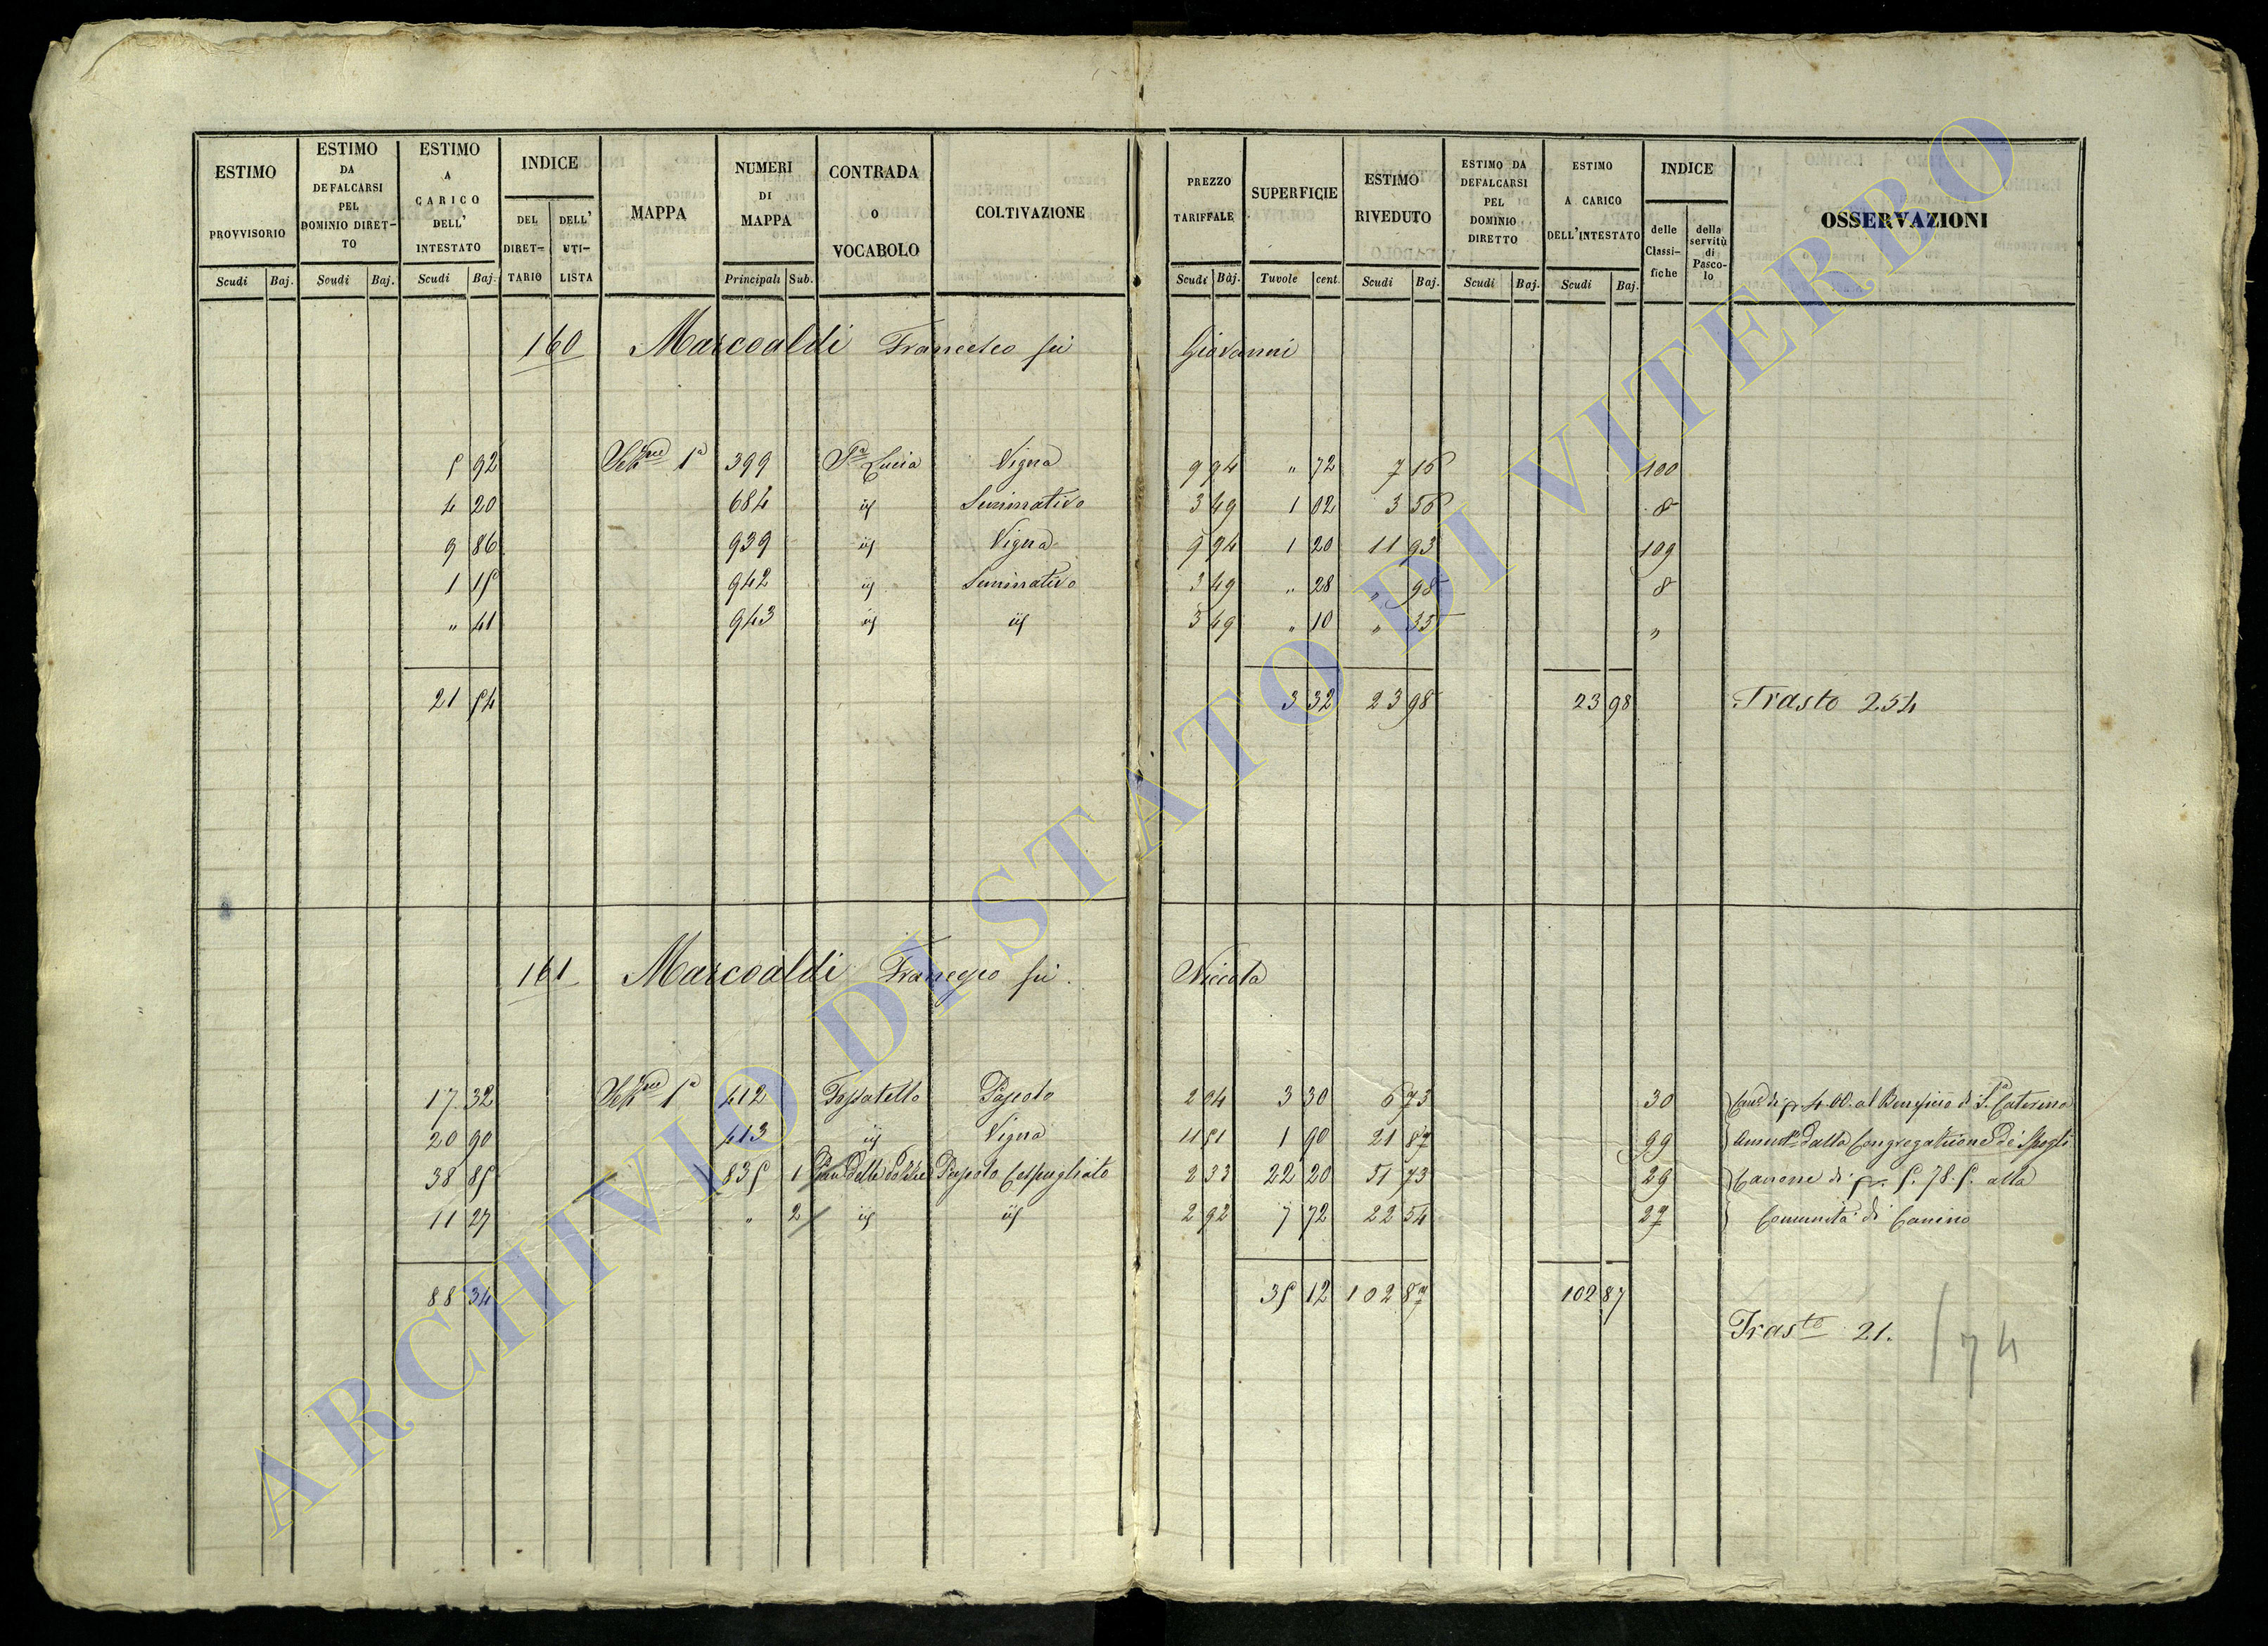 ESTIMO PROVVISORIO Scudi Baj. ESTIMO DA DEFALCARSI PEL DOMINIO DIRETTO Scudi Baj. ESTIMO A CARICO DELL' INTESTATO Scudi Baj. INDICE DEL DIRETTARIO DELL' UTILISTA MAPPA NUMERI DI MAPPA Principali Sub. CONTRADA O VOCABOLO COLTIVAZIONE PREZZO TARIFFALE Scudi Baj. SUPERFICIE Tavole cent. ESTIMO RIVEDUTO Scudi Baj. ESTIMO DA DEFALCARSI PEL DOMINIO DIRETTO Scudi Baj. ESTIMO A CARICO DELL'INTESTATO Scudi Baj. INDICE delle Classifiche della servitù di Pascolo OSSERVAZIONI
160 Marcoaldi Francesco fù Giovanni
5 92 Sez.ne 1a 399 S.a Lucia Vigna 9 94 " 72 7 16 100
4 20 684 id Seminativo 3 49 1 02 3 56 8
9 86 939 id Vigna 9 94 1 20 11 93 109
1 15 942 id Seminativo 3 49 " 28 " 98 8
" 41 943 id id 3 49 " 10 " 35 "
21 54 3 32 23 98 23 98 Trasto 254
161 Marcoaldi Franc̄esco fù Niccola
17 32 Sez.ne 1a 412 Fossatello Pascolo 2 04 3 30 6 73 30 di 4.00. al Beneficio di S.a Caterina
20 90 413 id Vigna 11 51 1 90 21 87 99 dalla Congregazione de' Spogli
38 85 835 1 Pian delle Pascolo Cespugliato 2 33 22 20 51 73 29 Canone di 5.78.5. alla
11 27 " 2 id id 2 92 7 72 22 54 27 Comunità di Canino
88 34 35 12 102 87 102 87
Trasto 21. 174
ARCHIVIO DI STATO DI VITERBO